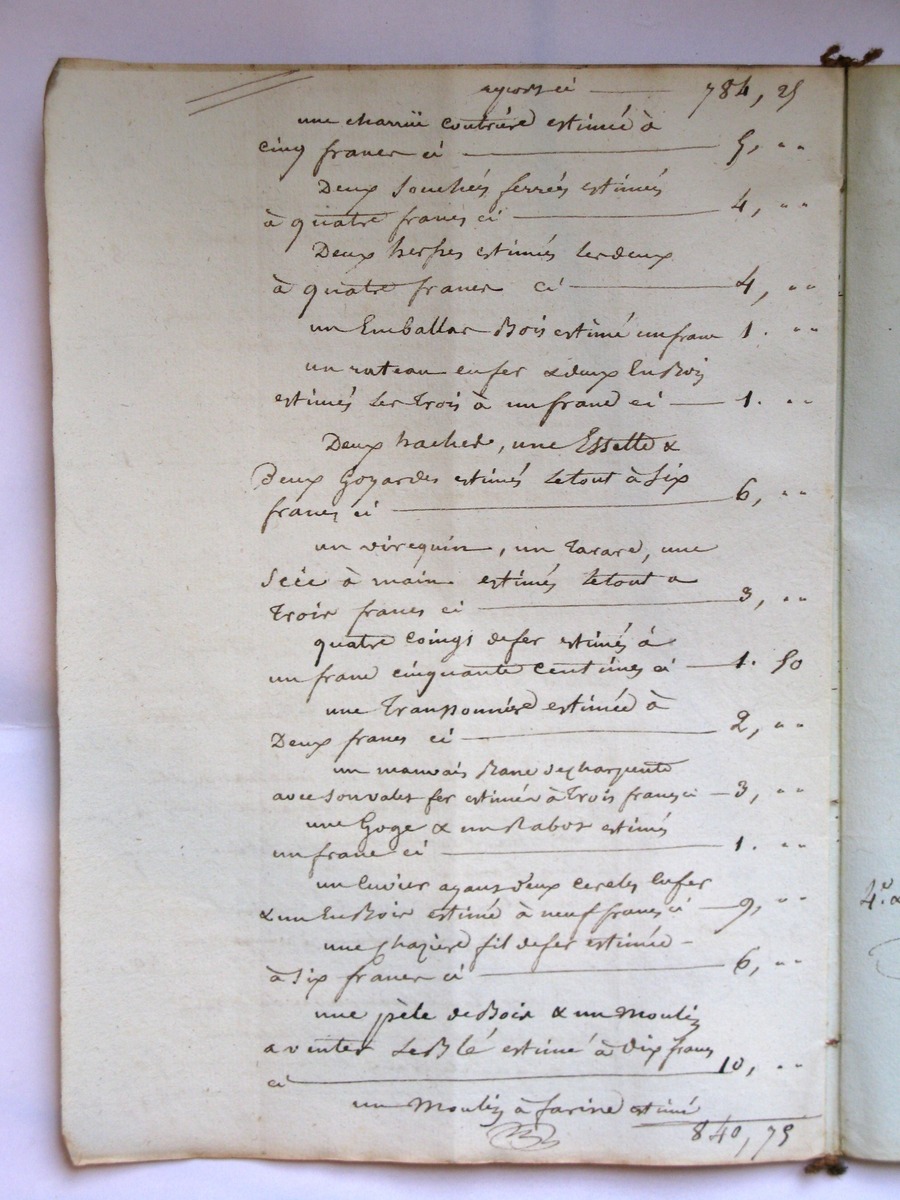 report ci 784, 25
une charrüe coutrière estimée à
cinq francs ci 5, " "
Deux souchés ferrés estimés
à quatre francs ci 4, " "
Deux herses estimés les deux
à quatre francs ci 4, " "
un Emballar Bois estimé un franc 1. " "
un rateau en fer & deux En Bois
estimés les Trois à un franc ci 1. " "
Deux haches, une Essette &
Deux Goyardes estimés le tout à Six
francs ci 6, " "
un virequin, un Tarare, une
Scie à main estimés le tout a
Trois francs ci 3, " "
quatre Coings de fer estimés à
un franc cinquante centimes ci 1. 50
une Transsonnière estimée à
Deux francs ci 2, " "
un mauvais Banc de charpente
avec son valet fer estimés à Trois francs ci 3, " "
une Goge & un Rabot estimés
un franc ci 1. " "
un Cuvier ayant deux cercles En fer
& un En Bois estimé à neuf francs ci 9, " "
une fil de fer estimée
à Six francs ci 6, " "
une pèle de Bois & un Moulin
a venter Le Blé estimé à dix francs
ci 10, " "
un Moulin à farine estimé
840, 75
4.e &